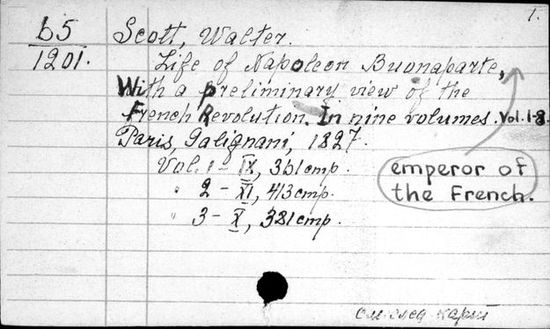 1.
b5
1201.
Scott, Walter.
Life of Napoleon Buonaparte,
With a preliminary view of the
French Revolution. In nine volumes. Vol. 1-8.
Paris, Galignani, 1827.
Vol. 1 - IX, 361 cmp.
" 2 - XI, 413 cmp.
" 3 - X, 381 cmp.
emperor of
the French.
см. след карт